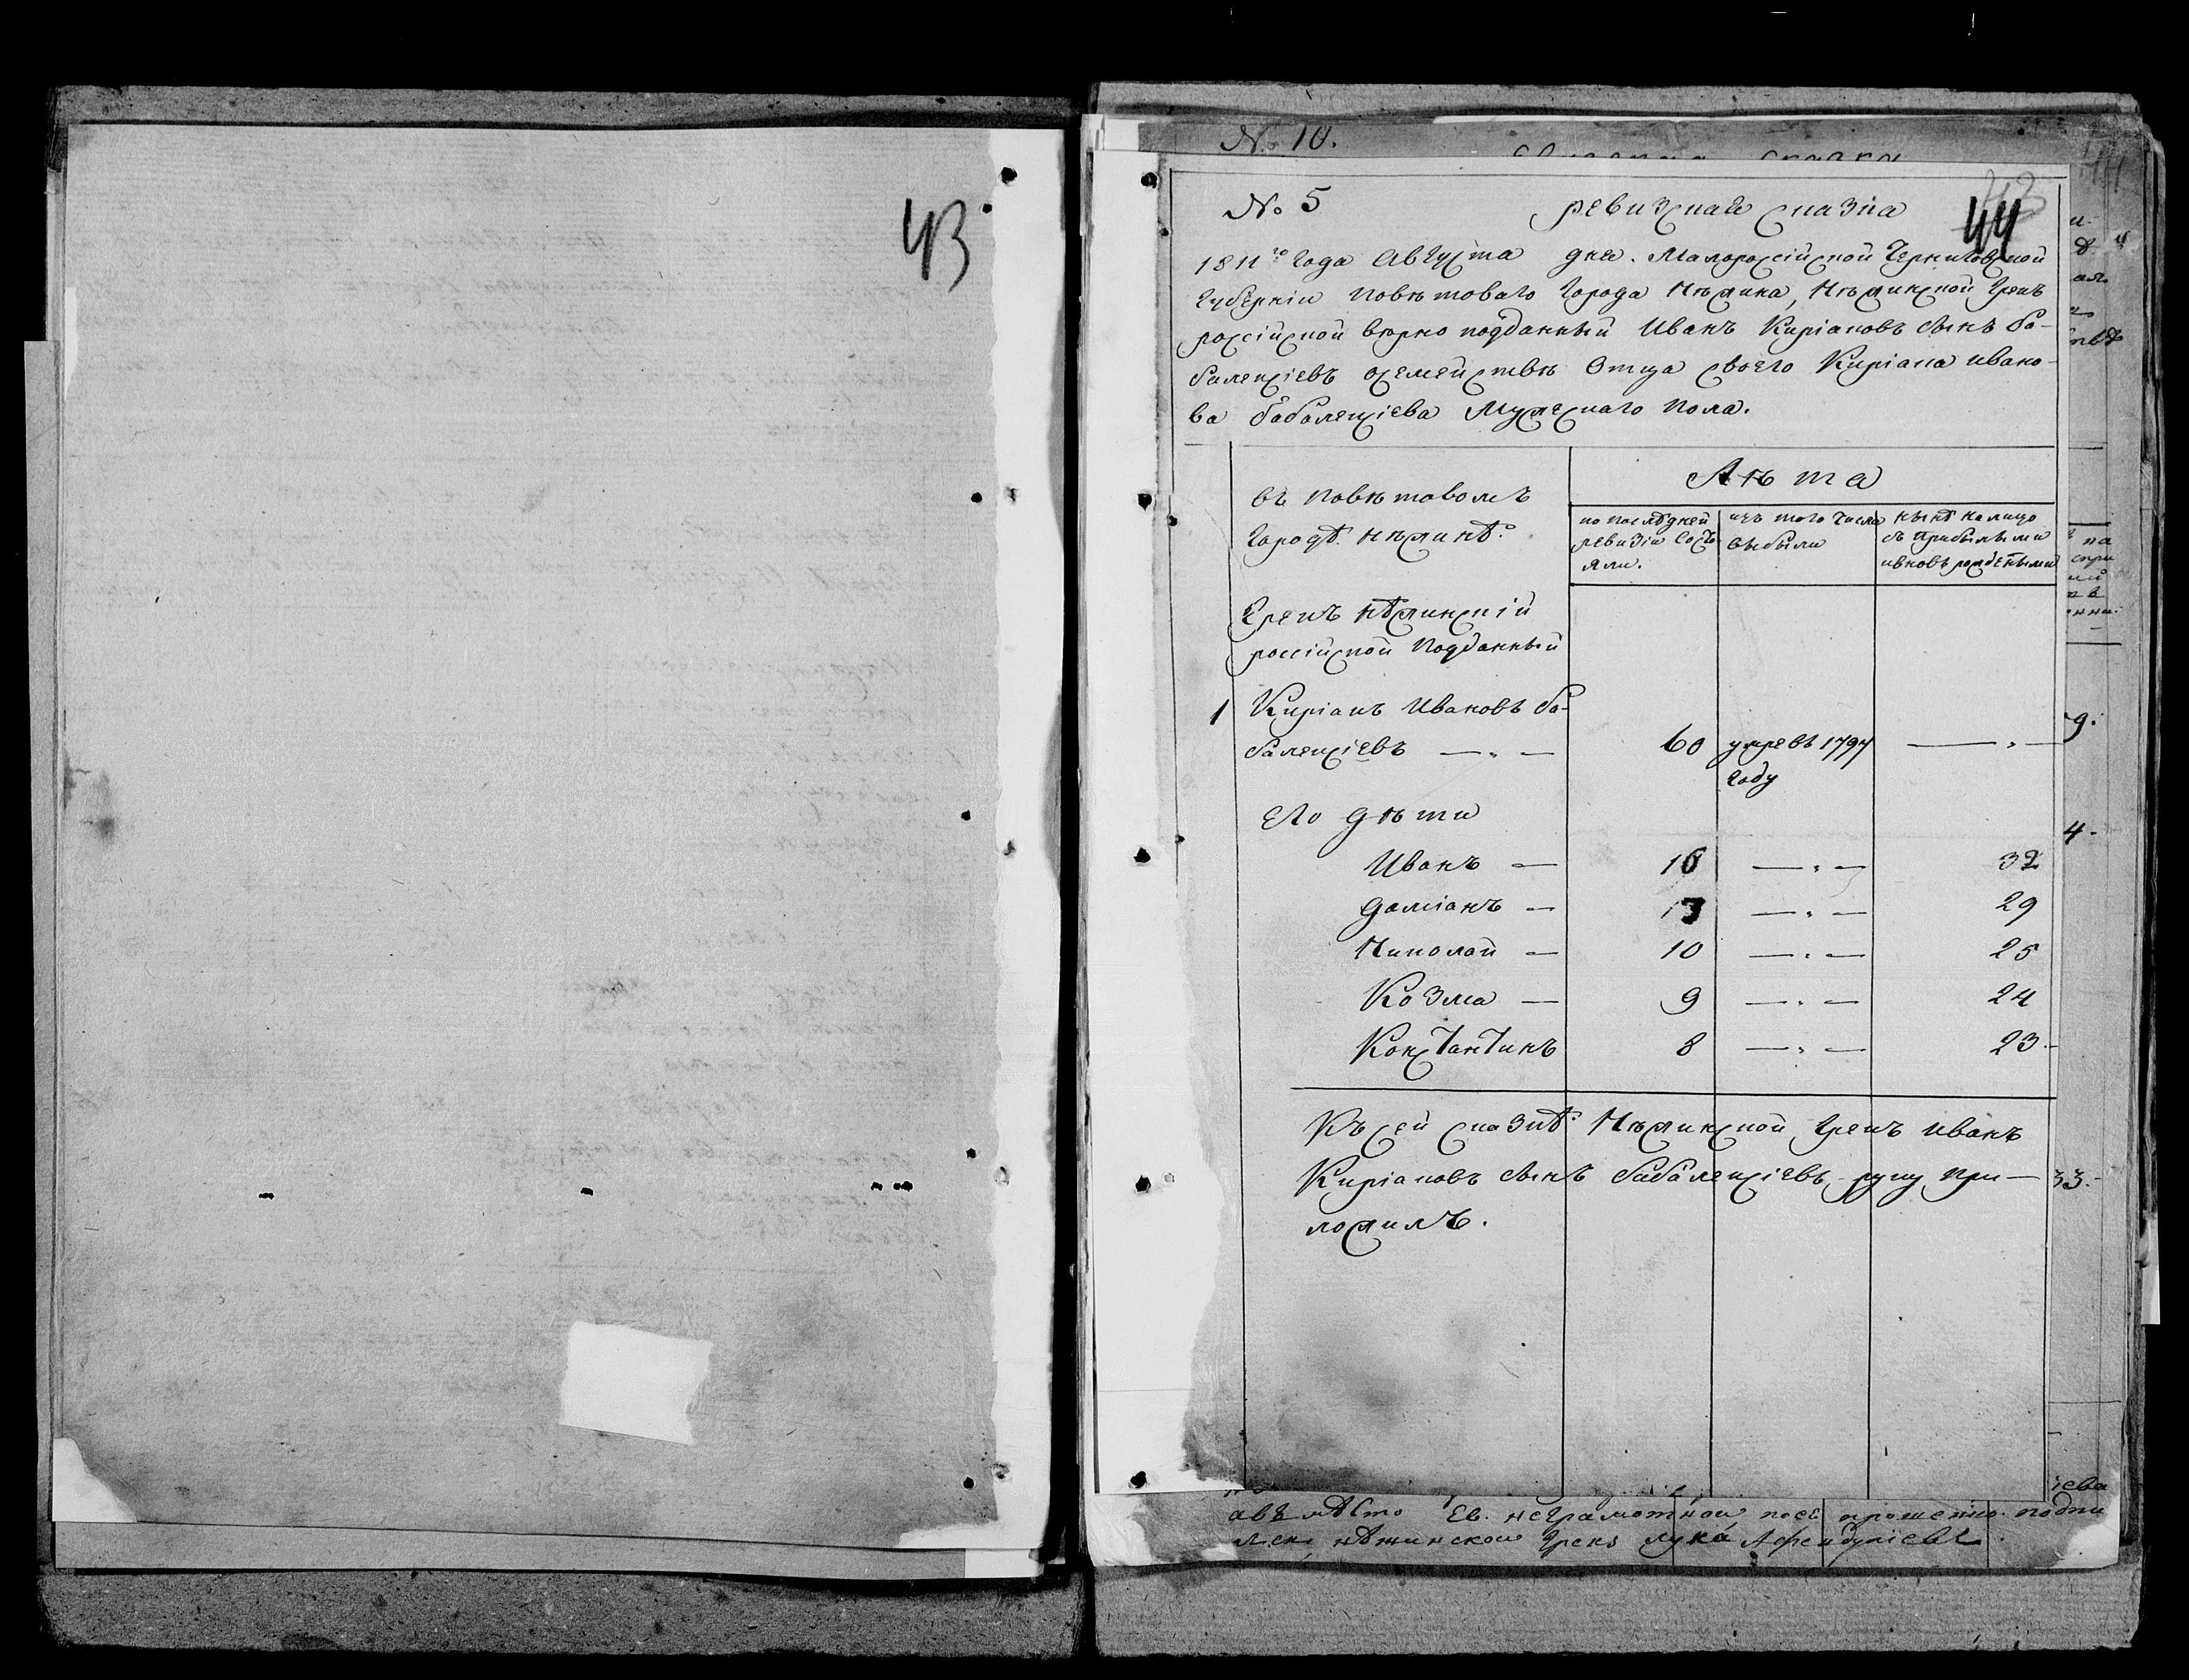 43
№ 10.
№ 5 ревизская сказка 44
1811го года августа дня. Малороссійской Черниговской
губерніи поветоваго города Нежина, Нежинской грекъ
россійской верно подданный Иванъ Киріаковъ сынъ Ба-
баленсіевъ осемействе отца своего Киріака Ивано-
ва Бабаленсіева мужескаго пола.
въ поветовомъ
городѣ нежинѣ:
Лѣта
по последней
ревизіи состо
яли.
изъ того числа
выбыли
нынѣ налицо
съ прибылыми
ивновь рожденными
Грекъ нѣжинскій
россійской подданный
1 Киріакъ Ивановъ Ба-
баленсіевъ — „ — 60 умре въ 1797 — „ —
году
его дѣти
Иванъ — 16 — „ — 32
Даміанъ — 13 — „ — 29
Николай — 10 — „ — 25
Козма — 9 — „ — 24
Константинъ 8 — „ — 23
Къ сей сказкѣ Нежинской грекъ Иванъ
Киріаковъ сынъ Бабаленсіевъ руку при-
ложилъ.
неграмотной
нѣжинской грекъ лука Афендуліевъ